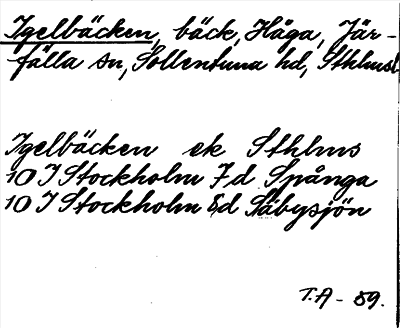 Igelbäcken, bäck, Håga, Jär-
fälla sn, Sollentuna hd, Sthlmsl
Igelbäcken ek Sthlms
10 I Stockholm 7d Spånga
10 I Stockholm 8d Säbysjön
T.A - 59.